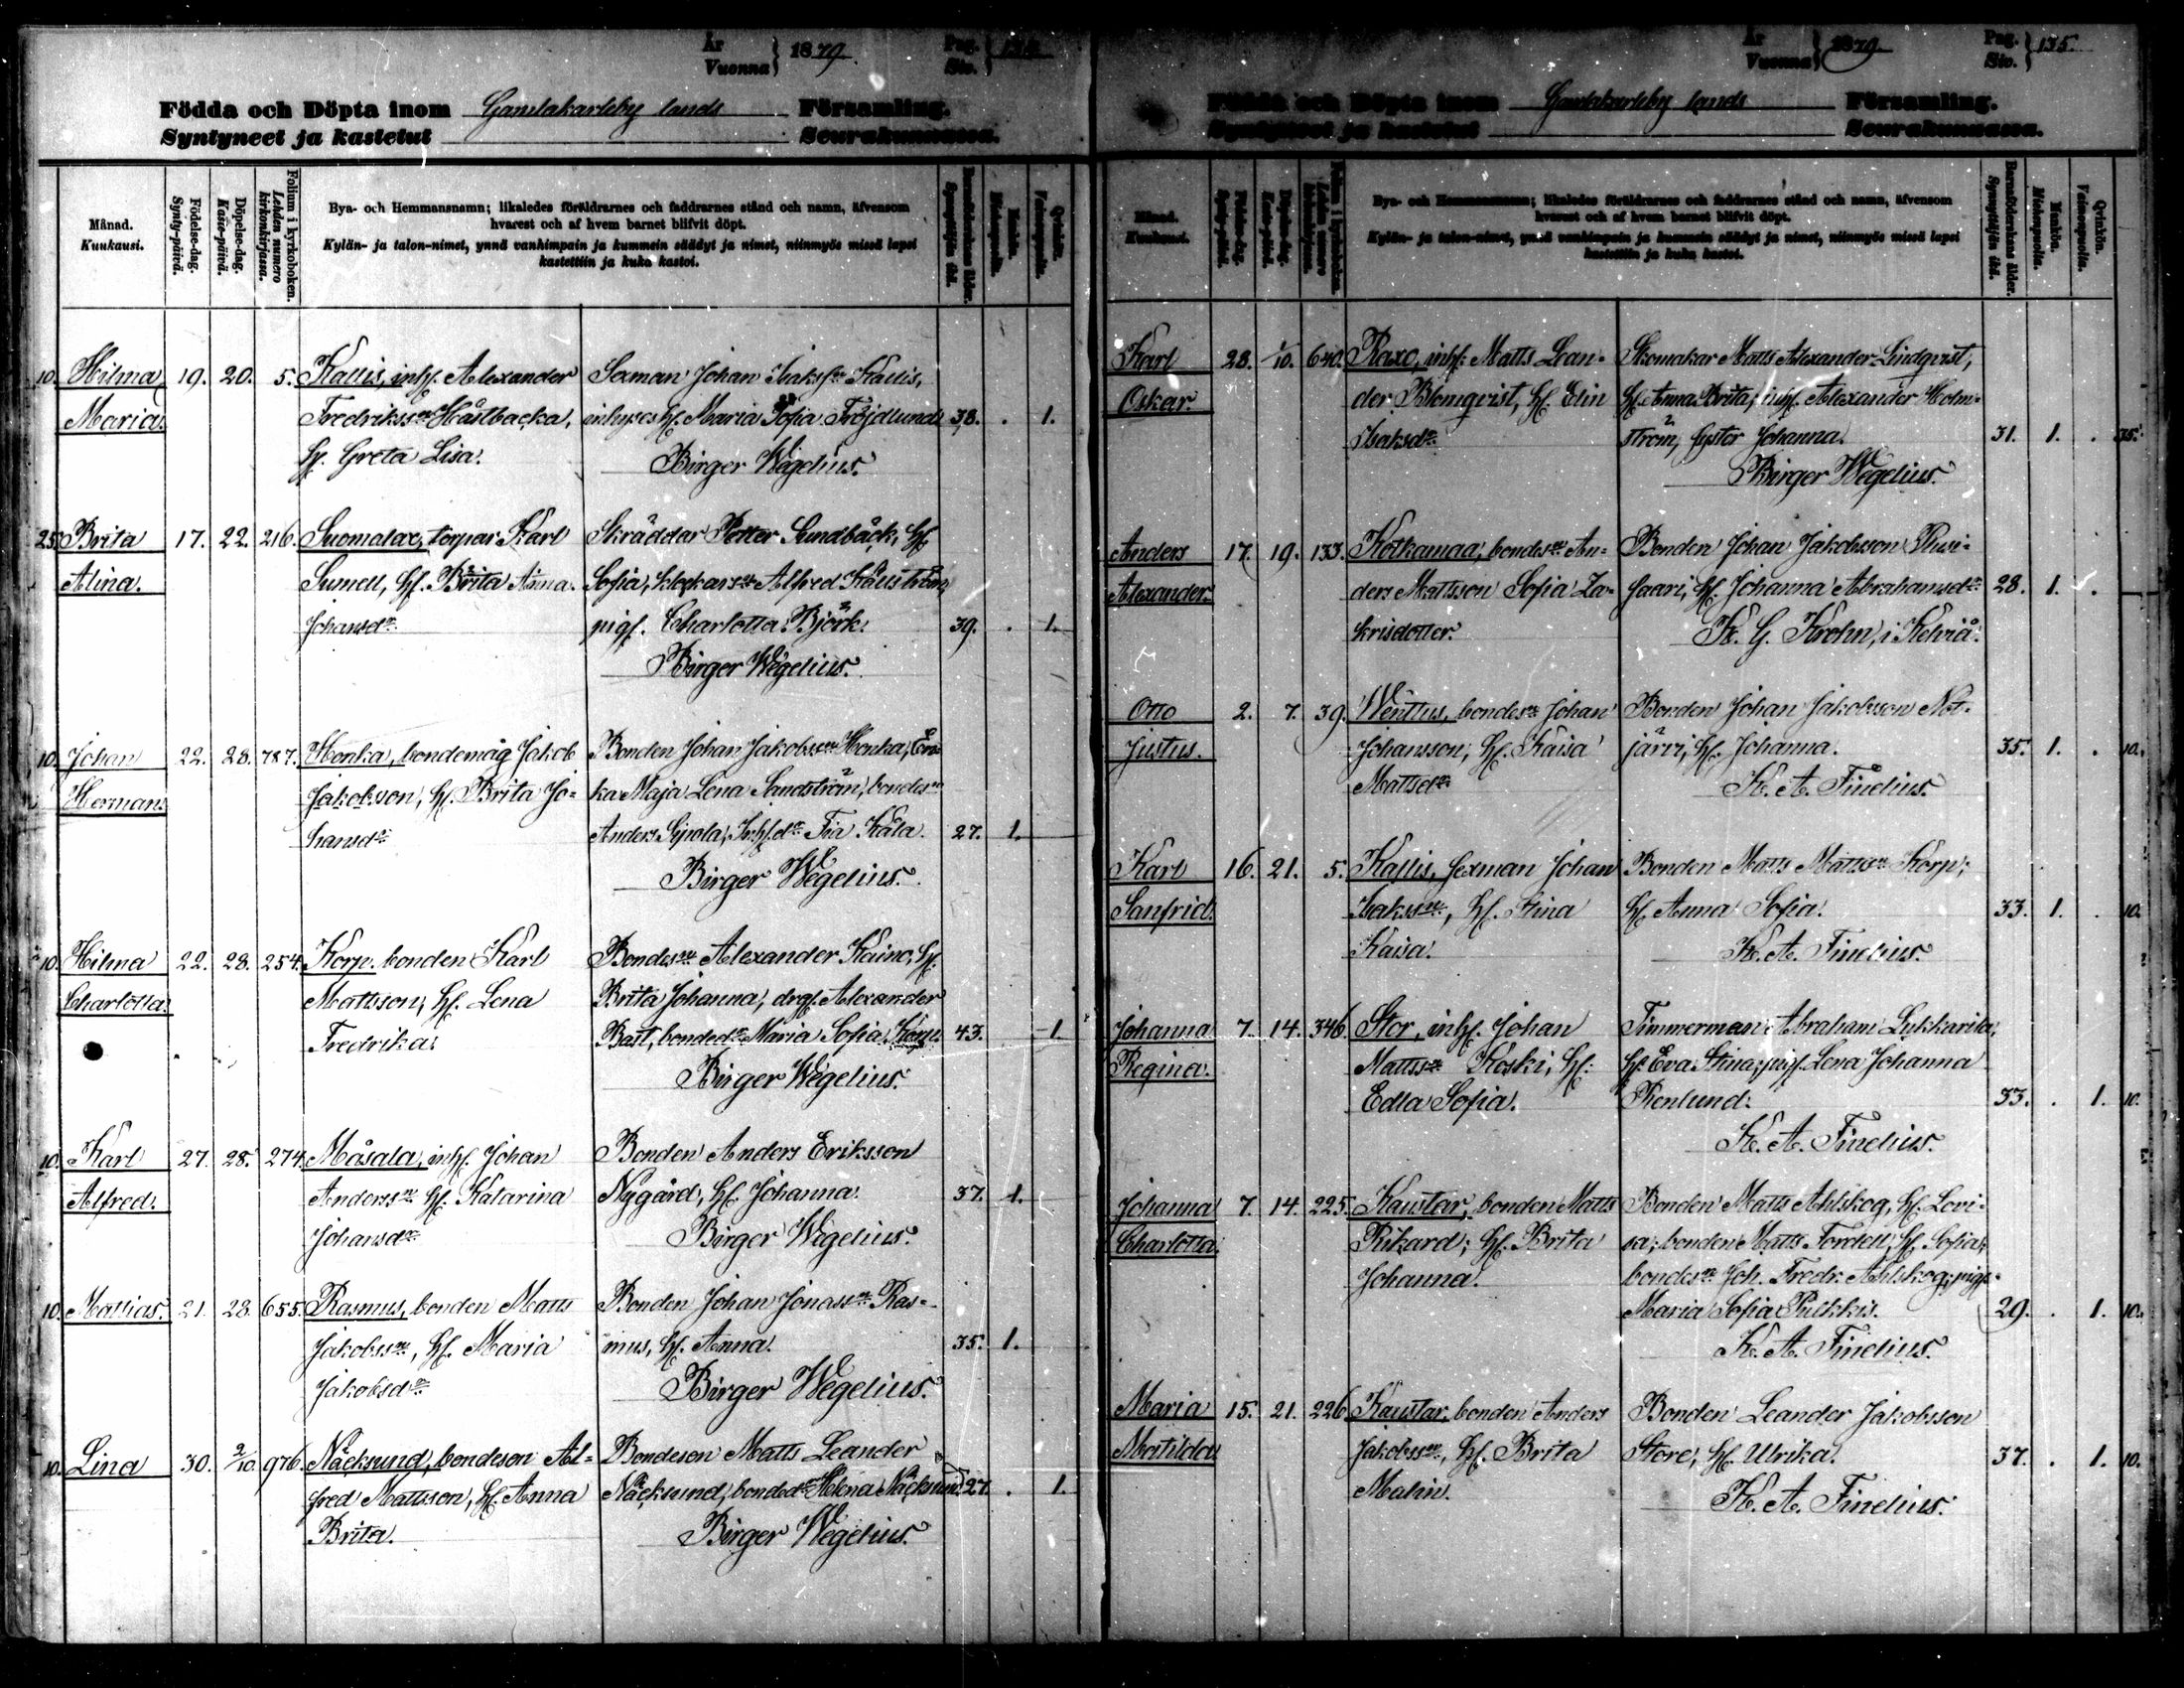 År
Vuonna } 1879.
Pag.
Siv. }
Födda och Döpta inom Gamlakarleby lands Församling.
Syntyneet ja kastetut Seurakunnassa.
Månad.
Kuukausi.
Födelse-dag.
Synty-päivä.
Döpelse-dag.
Kaste-päivä.
Folium i kyrkoboken.
Lehden numero
kirkonkirjassa.
Bya- och Hemmansnamn; likaledes föräldrarnes och faddrarnes stånd och namn, äfvensom
hvarest och af hvem barnet blifvit döpt.
Kylän- ja talon-nimet, ynnä vanhimpain ja kummein säädyt ja nimet, niinmyös missä lapsi
kastettiin ja kuka kastoi.
Barnaföderskans ålder.
Synnyttäjän ikä.
Mankön.
Miehenpuolia.
Qvinkön.
Vaimonpuolia.
10. Hilma 19. 20. 5. Kallis, inhs. Alexander Sexman Johan Isakssn Kallis,
Maria. Fredrikssn Hästbacka, inhyses h. Maria Sofia Fröjdlund 38. . 1.
h. Greta Lisa. Birger Wegelius.
25. Brita 17. 22. 216. Suomalax, torpar. Karl Skräddar Petter Sundbäck, h.
Alina. Sumell, h. Brita Anna Sofia, klockaresn Alfred Källström,
Johansdr. pig. Charlotta Björk. 39. . 1.
Birger Wegelius.
10. Johan 22. 28. 787. Honka, bondemåg Jakob Bonden Johan Jakobsson Honka, En-
Herman. Jakobsson, h. Brita Jo- ka Maja Lena Sandström, bondesn
hansdr Anders Sipola, Fia Kåla. 27. 1.
Birger Wegelius.
10. Hilma 22. 28. 254. Korp. bonden Karl Bondesn Alexander Kaino, h.
Charlotta. Mattsson, h. Lena Brita Johanna, drg. Alexander
Fredrika. Bast, bondedr Maria Sofia Korp. 43. 1.
Birger Wegelius.
10. Karl 27. 28. 274. Måsala, inhs. Johan Bonden Anders Eriksson
Alfred. Anderssn h. Katarina Nygård, h. Johanna. 37. 1.
Johansdr Birger Wegelius.
10. Mattias. 21. 28. 655. Rasmus, bonden Matts Bonden Johan Jonassn Ras-
Jakobssn, h. Maria mus, h. Anna. 35. 1.
Jakobsdr Birger Wegelius.
10. Lina 30. 2/10. 976. Näcksund, bondeson Al- Bondeson Matts Leander
fred Mattsson, h. Anna Näcksund, bondedr Helena Näcksund 27. . 1.
Brita. Birger Wegelius.
År
Vuonna } 1879.
Pag.
Siv. } 135.
Födda och Döpta inom Gamlakarleby lands Församling.
Syntyneet ja kastetut Seurakunnassa.
Månad.
Kuukausi.
Födelse-dag.
Synty-päivä.
Döpelse-dag.
Kaste-päivä.
Folium i kyrkoboken.
Lehden numero
kirkonkirjassa.
Bya- och Hemmansnamn; likaledes föräldrarnes och faddrarnes stånd och namn, äfvensom
hvarest och af hvem barnet blifvit döpt.
Kylän- ja talon-nimet, ynnä vanhimpain ja kummein säädyt ja nimet, niinmyös missä lapsi
kastettiin ja kuka kastoi.
Barnaföderskans ålder.
Synnyttäjän ikä.
Mankön.
Miehenpuolia.
Qvinkön.
Vaimonpuolia.
Karl 28. /10. 640. Raxo, inhs. Matts Lean- Skomakar Matts Alexander Lindqvist,
Oskar. der Blomqvist, h. Elin h. Anna Brita, inhs. Alexander Holm-
Isaksdr ström, hustr Johanna. 31. 1. . 35.
Birger Wegelius.
Anders 17. 19. 133. Kotkamaa, bondesn An- Bonden Johan Jakobsson
Alexander. ders Mattsson Sofia Za- saari, h. Johanna Abrahamsdr 28. 1. .
krisdotter. K. G. Krohn, i Kelviå.
Otto 2. 7. 39. Wenttus, bondesn Johan Bonden Johan Jakobsson Not-
Justus. Johansson, h. Kaisa järvi, h. Johanna. 35. 1. . 10.
Mattsdr K. A. Finelius.
Karl 16. 21. 5. Kallis, Sexman Johan Bonden Matts Mattssn Korp,
Sanfrid. Isakssn, h. Stina h. Anna Sofia. 33. 1. . 10.
Kaisa. K. A. Finelius.
Johanna 7. 14. 346. Stor, inhs. Johan Timmerman Abraham Lukkarila,
Regina. Mattssn Koski, h. h. Eva Stina; pig. Lena Johanna
Edla Sofia. Renlund. 33. . 1. 10.
K. A. Finelius.
Johanna 7. 14. 225. Kaustar, bonden Matts Bonden Matts Ahlskog, h. Lovi-
Charlotta. Rikard; h. Brita sa; bonden Matts Fordell, h. Sofia;
Johanna. bondesn Joh. Fredr. Ahlskog; pig.
Maria Sofia Pulkkis. 29. . 1. 10.
K. A. Finelius.
Maria 15. 21. 226. Kaustar, bonden Anders Bonden Leander Jakobsson
Matilda Jakobssn, h. Brita Store, h. Ulrika. 37. . 1. 10.
Malin. K. A. Finelius.